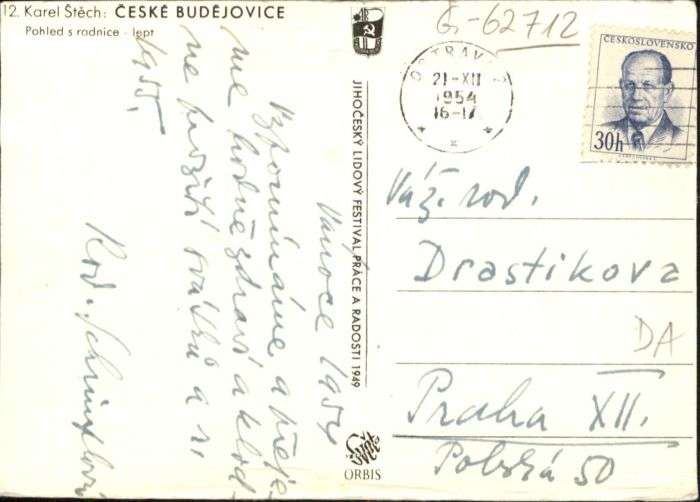 12. Karel Štěch: ČESKÉ BUDĚJOVICE
Pohled s radnice - lept
JIHOČESKÝ LIDOVÝ FESTIVAL PRÁCE A RADOSTI 1949
ORBIS
G-62712
OSTRAVA
21-XII
1954
16-17
ČESKOSLOVENSKO
30h
Vánoce 1954
Vzpomínáme a přeje-
me hodně zdraví a klid-
né prožití svátků a r.
1955.
Rod. Schimplovi
Váž. rod.
Drastikova
DA
Praha XII.
Polská 50